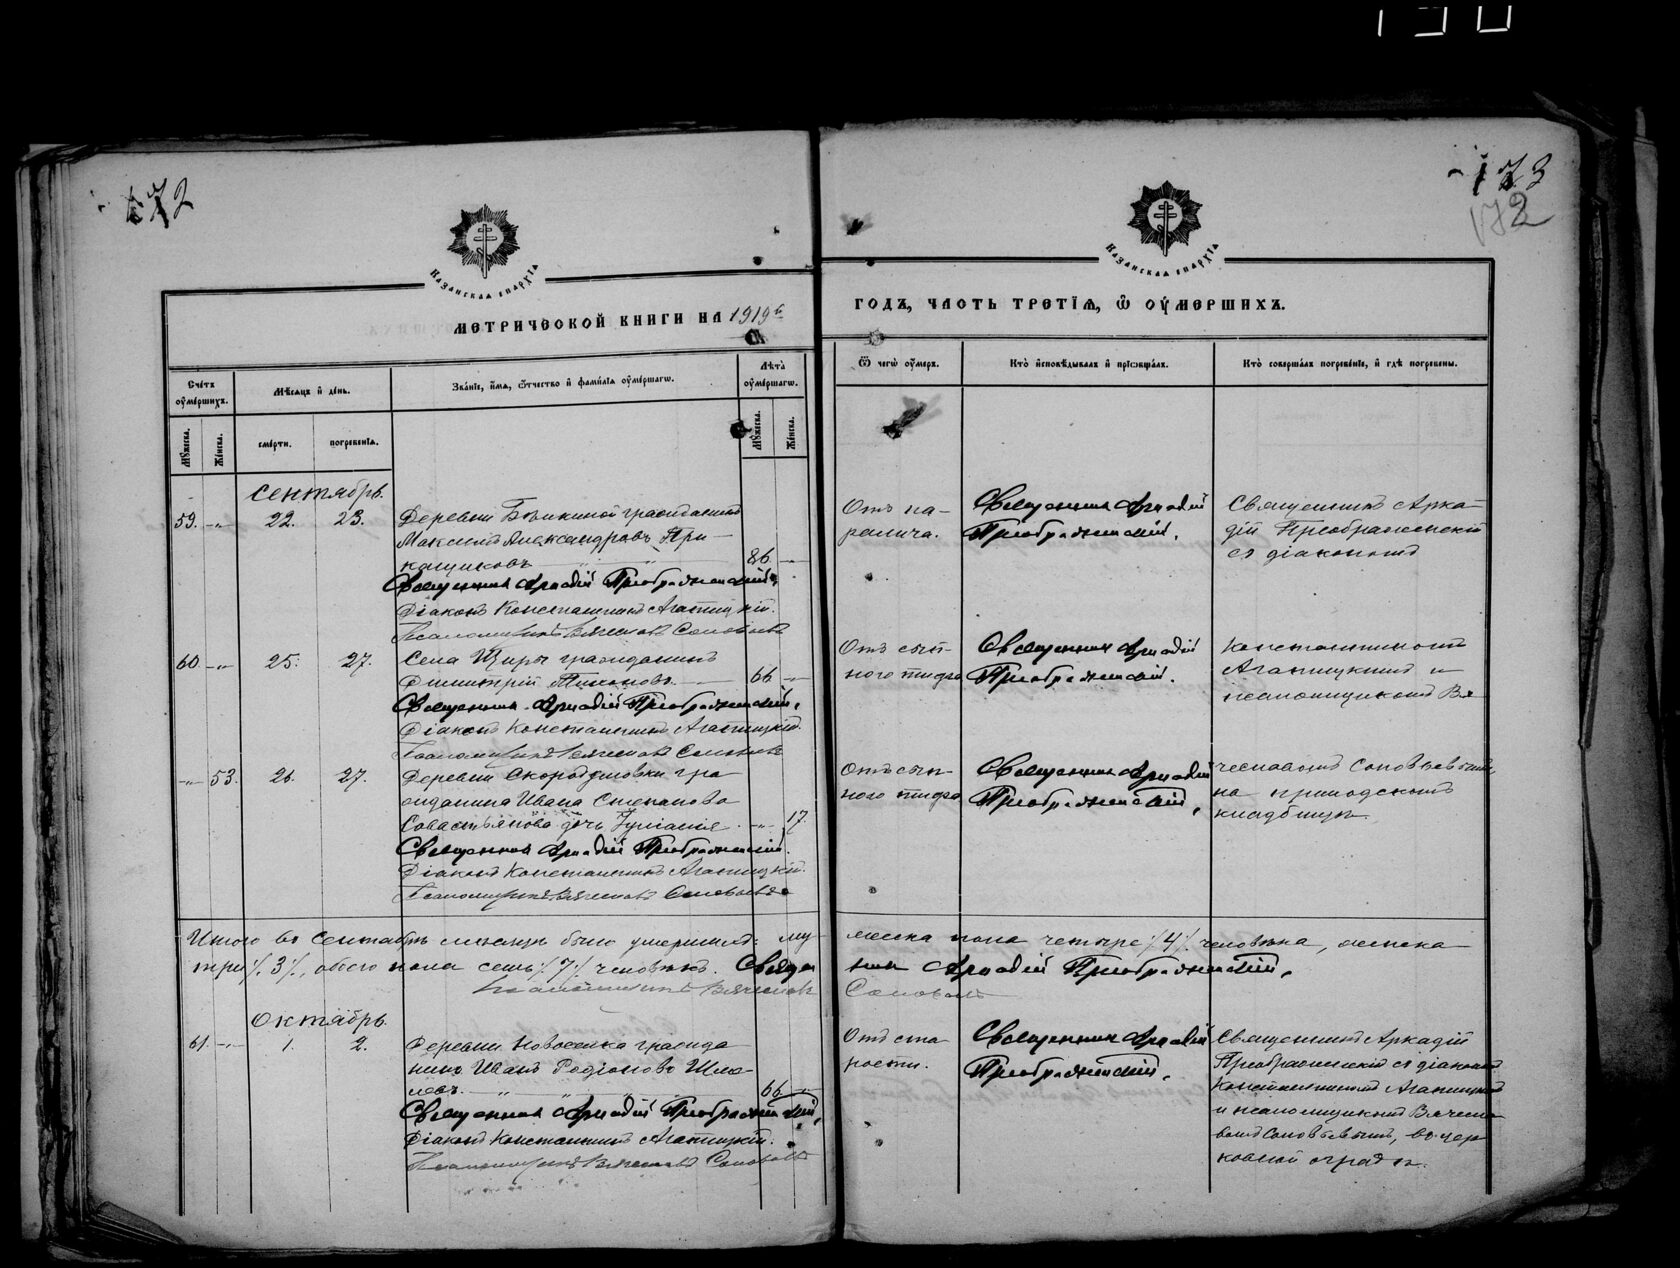 172
173
172
КАЗАНСКАЯ ЕПАРХІЯ
КАЗАНСКАЯ ЕПАРХІЯ
МЕТРИЧЕСКОЙ КНИГИ НА 1919й
ГОДЪ, ЧАСТЬ ТРЕТІѦ, Ѿ ОУМЕРШИХЪ.
Счétъ оумéршихъ.
Мѣсѧцъ и день.
Звáніе, имѧ, ѿтчество и фамилїѧ оумéршагѡ.
Лѣта оумéршагѡ.
Ѿ чегѡ оумеръ.
Кто исповѣдывалъ и прїѡбщалъ.
Кто совершалъ погребéніе, и гдѣ погребены.
Мужеска.
Женска.
смерти.
погребенїѧ.
Мужеска.
Женска.
Сентябрь.
59. -„- 22. 23.
Деревни гражданинъ
Максимъ Александровъ При-
86. —
Священникъ Аркадій Преображенскій.
Діаконъ Константинъ Агапицкій.
Псаломщикъ Вячеславъ Соловьевъ
Отъ па-
ралича.
Священникъ Аркадій
Преображенскій.
Священникъ Арка-
дій Преображенскій
съ діакономъ
60. -„- 25. 27.
Села гражданинъ
Димитрій 66 —
Священникъ Аркадій Преображенскій.
Діаконъ Константинъ Агапицкій.
Псаломщикъ Вячеславъ Соловьевъ
Отъ сып-
ного тифа
Священникъ Аркадій
Преображенскій.
Константиномъ
Агапицкимъ и
псаломщикомъ Вя-
-„- 53. 26. 27.
Деревни гра
жданина Ивана Степанова
Савастьянова дочь -„- 17.
Священникъ Аркадій Преображенскій.
Діаконъ Константинъ Агапицкій.
Псаломщикъ Вячеславъ Соловьевъ
Отъ сып-
ного тифа
Священникъ Аркадій
Преображенскій.
чеславомъ Соловьевымъ,
на приходскомъ
кладбищѣ
Итого въ Сентябрѣ мѣсяцѣ было умершихъ: му-
жеска пола четыре ./4/. человѣка, женска
три ./3/., обоего пола семь ./7/. человѣкъ. Священ
никъ Аркадій Преображенскій.
Псаломщикъ Вячеславъ
Соловьевъ
Октябрь.
61. -„- 1. 2.
Деревни Новоселка гражда
нинъ Иванъ Родіоновъ Шме-
левъ. 66 —
Священникъ Аркадій Преображенскій.
Діаконъ Константинъ Агапицкій.
Псаломщикъ Вячеславъ Соловьевъ
Отъ ста
рости.
Священникъ Аркадій
Преображенскій.
Священникъ Аркадій
Преображенскій съ діакономъ
Константиномъ Агапицкимъ
и псаломщикомъ Вячесла
вомъ Соловьевымъ, въ цер
ковной оградѣ.